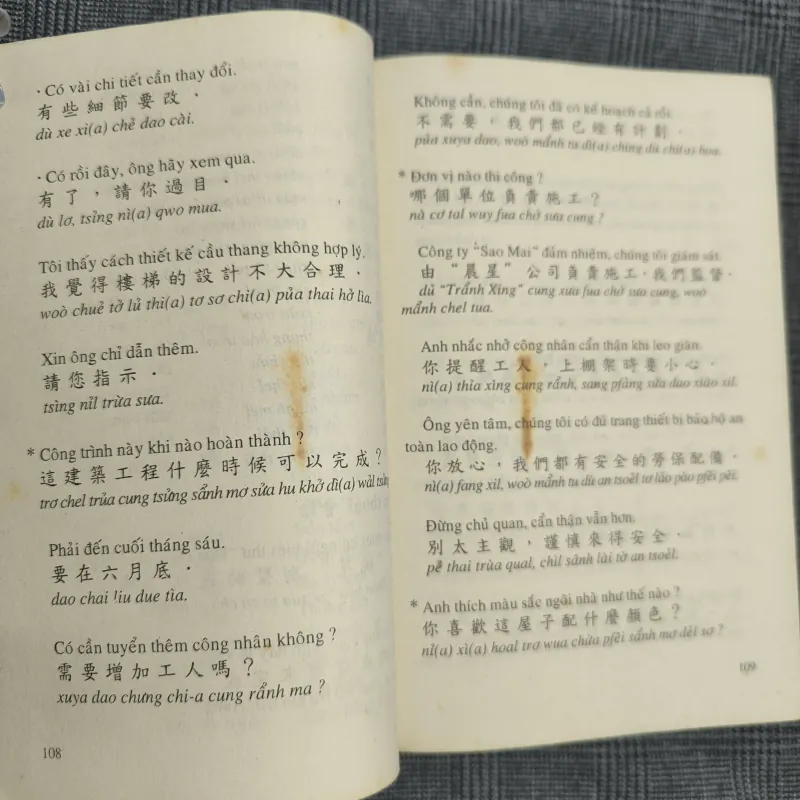 · Có vài chi tiết cần thay đổi.
有些細節要改．
dù xe xì(a) chẻ dao cài.
· Có rồi đây, ông hãy xem qua.
有了，請你過目．
dù lơ, tsỉng nì(a) qwo mua.
Tôi thấy cách thiết kế cầu thang không hợp lý.
我覺得樓梯的設計不大合理．
woò chuẻ tở lủ thi(a) tơ sơ chỉ(a) pủa thai hở lìa.
Xin ông chỉ dẫn thêm.
請您指示．
tsìng nỉl trừa sưa.
* Công trình này khi nào hoàn thành ?
這建築工程什麼時候可以完成？
trơ chel trủa cung tsửng sẩnh mơ sửa hu khở dì(a) wảl
Phải đến cuối tháng sáu.
要在六月底．
dao chai liu due tìa.
Có cần tuyển thêm công nhân không ?
需要增加工人嗎？
xuya dao chưng chi-a cung rẩnh ma ?
108
Không cần, chúng tôi đã có kế hoạch cả rồi.
不需要，我們都已經有計劃．
pủa xuya dao, woò mẩnh tu dì(a) ching dù chi(a) hoa.
* Đơn vị nào thi công ?
哪個單位負責施工？
nà cơ tal wuy fua chở sưa cung ?
Công ty "Sao Mai" đảm nhiệm, chúng tôi giám sát.
由“晨星”公司負責施工，我們監督．
dủ "Trẩnh Xing" cung xưa fua chở sưa cung, woò
mẩnh chel tua.
Anh nhắc nhở công nhân cẩn thận khi leo giàn.
你提醒工人，上棚架時要小心．
nì(a) thỉa xìng cung rẩnh, sang pfảng sửa dao xiào xil.
Ông yên tâm, chúng tôi có đủ trang thiết bị bảo hộ an
toàn lao động.
你放心，我們都有安全的勞保配備．
nì(a) fang xil, woò mẩnh tu dù an tsoẻl tơ lảo pào pfêi pêi.
Đừng chủ quan, cẩn thận vẫn hơn.
別太主觀，謹慎來得安全．
pẻ thai trùa qual, chìl sânh lải tở an tsoẻl.
* Anh thích màu sắc ngôi nhà như thế nào ?
你喜歡這屋子配什麼顏色？
nì(a) xì(a) hoal trơ wua chừa pfêi sẩnh mơ dẻl sơ ?
109